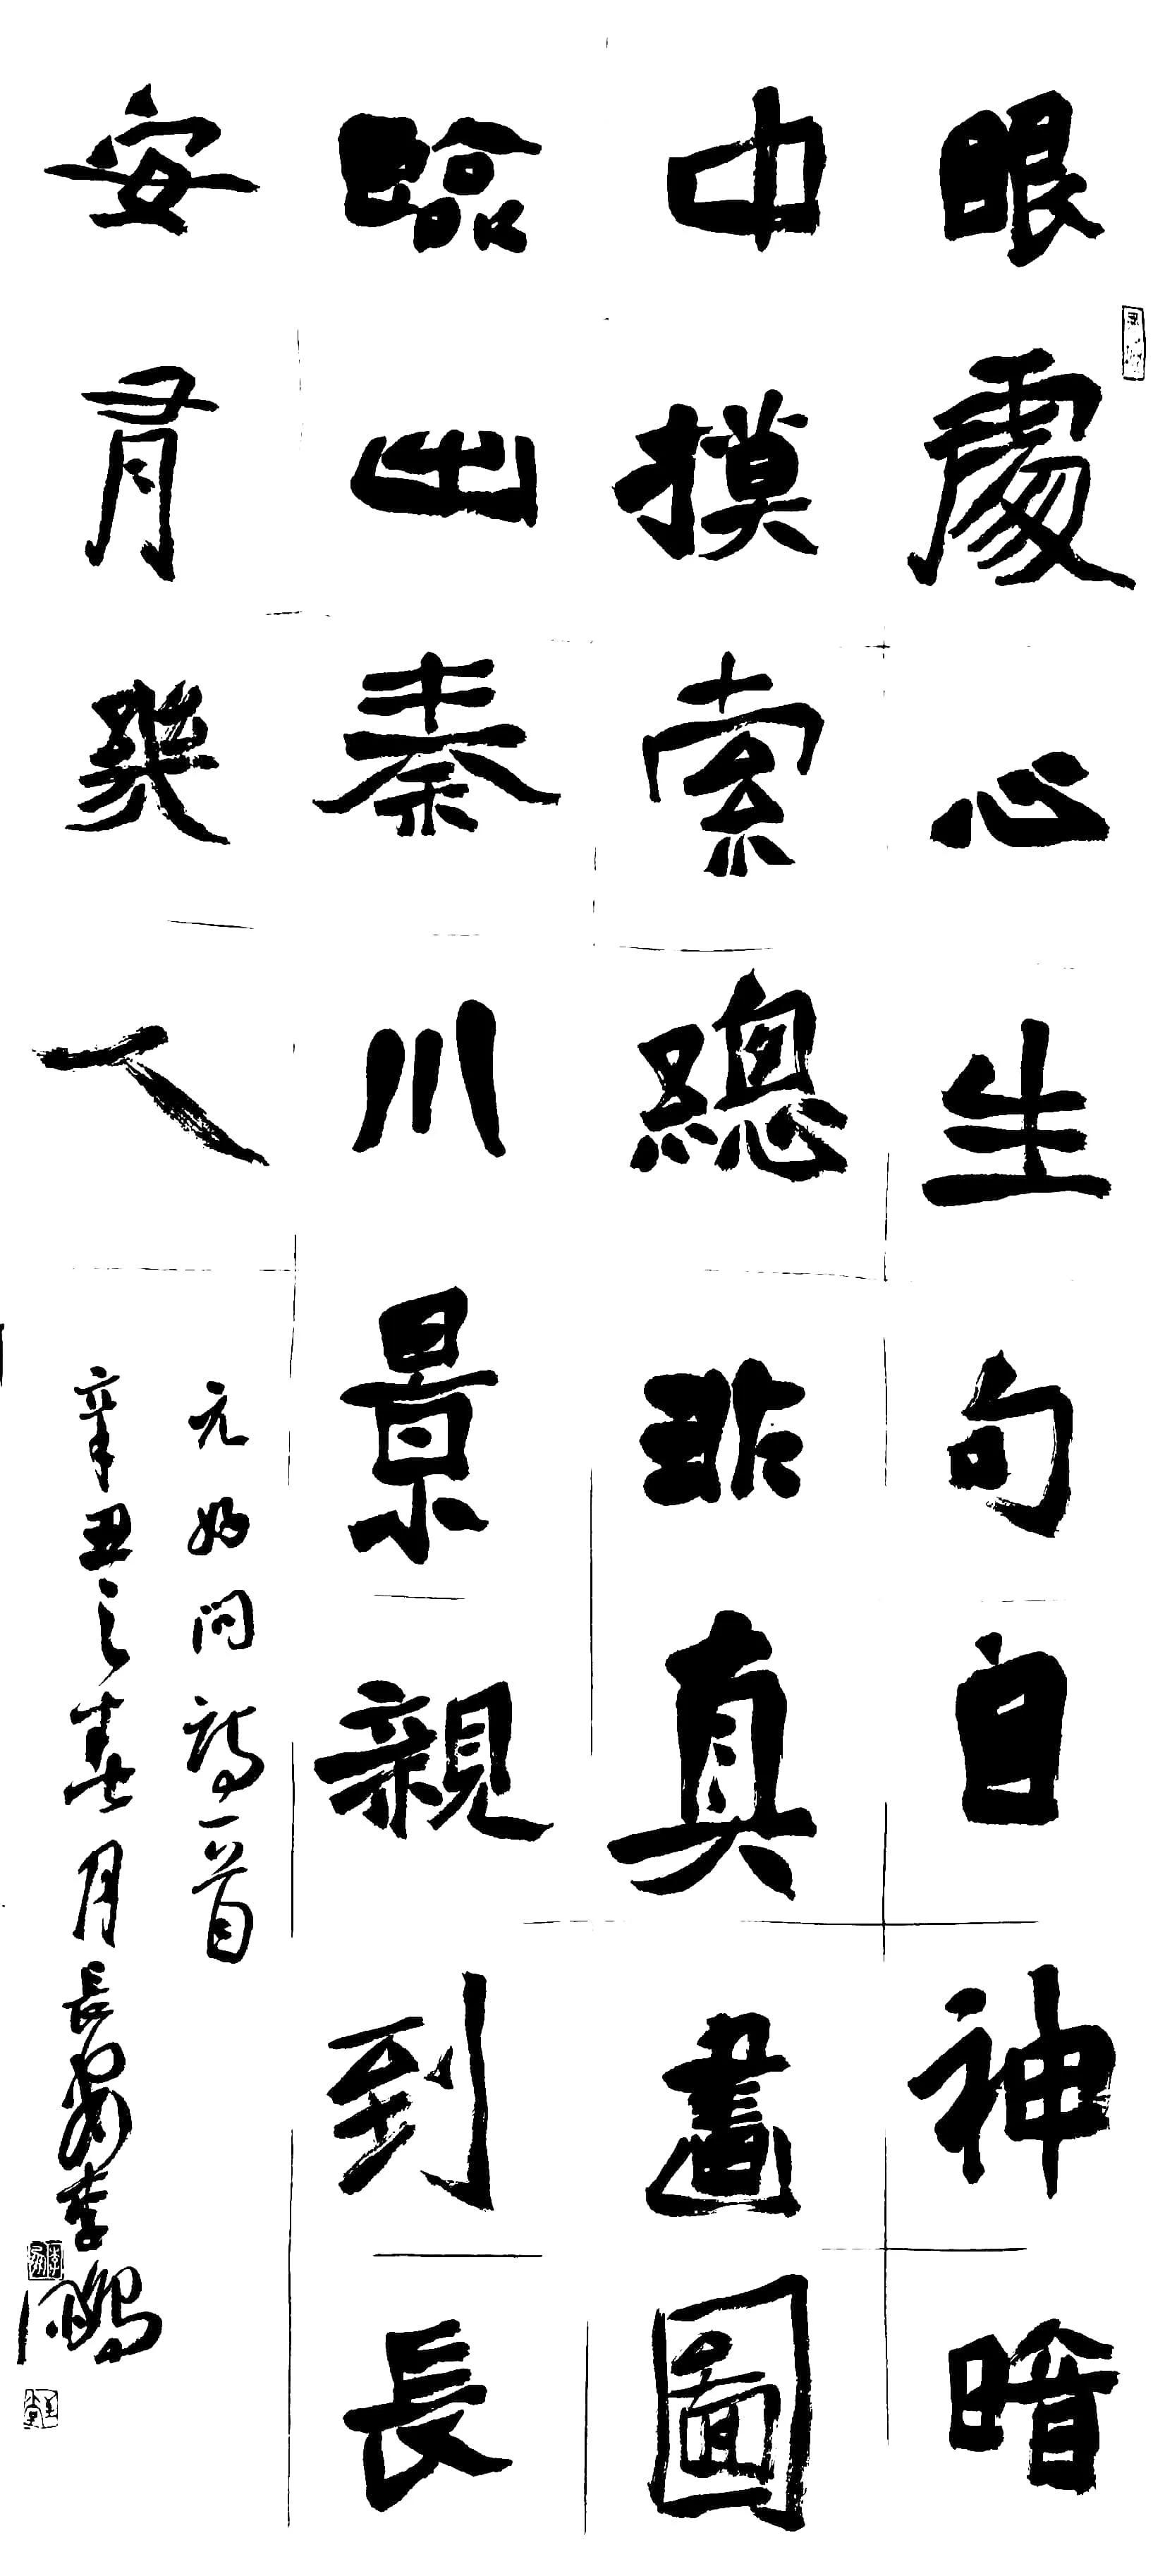 眼處心生句自神暗
中摸索總非真畫圖
臨出秦川景親到長
安有幾人
元好问詩一首
辛丑之春月長安李鵬